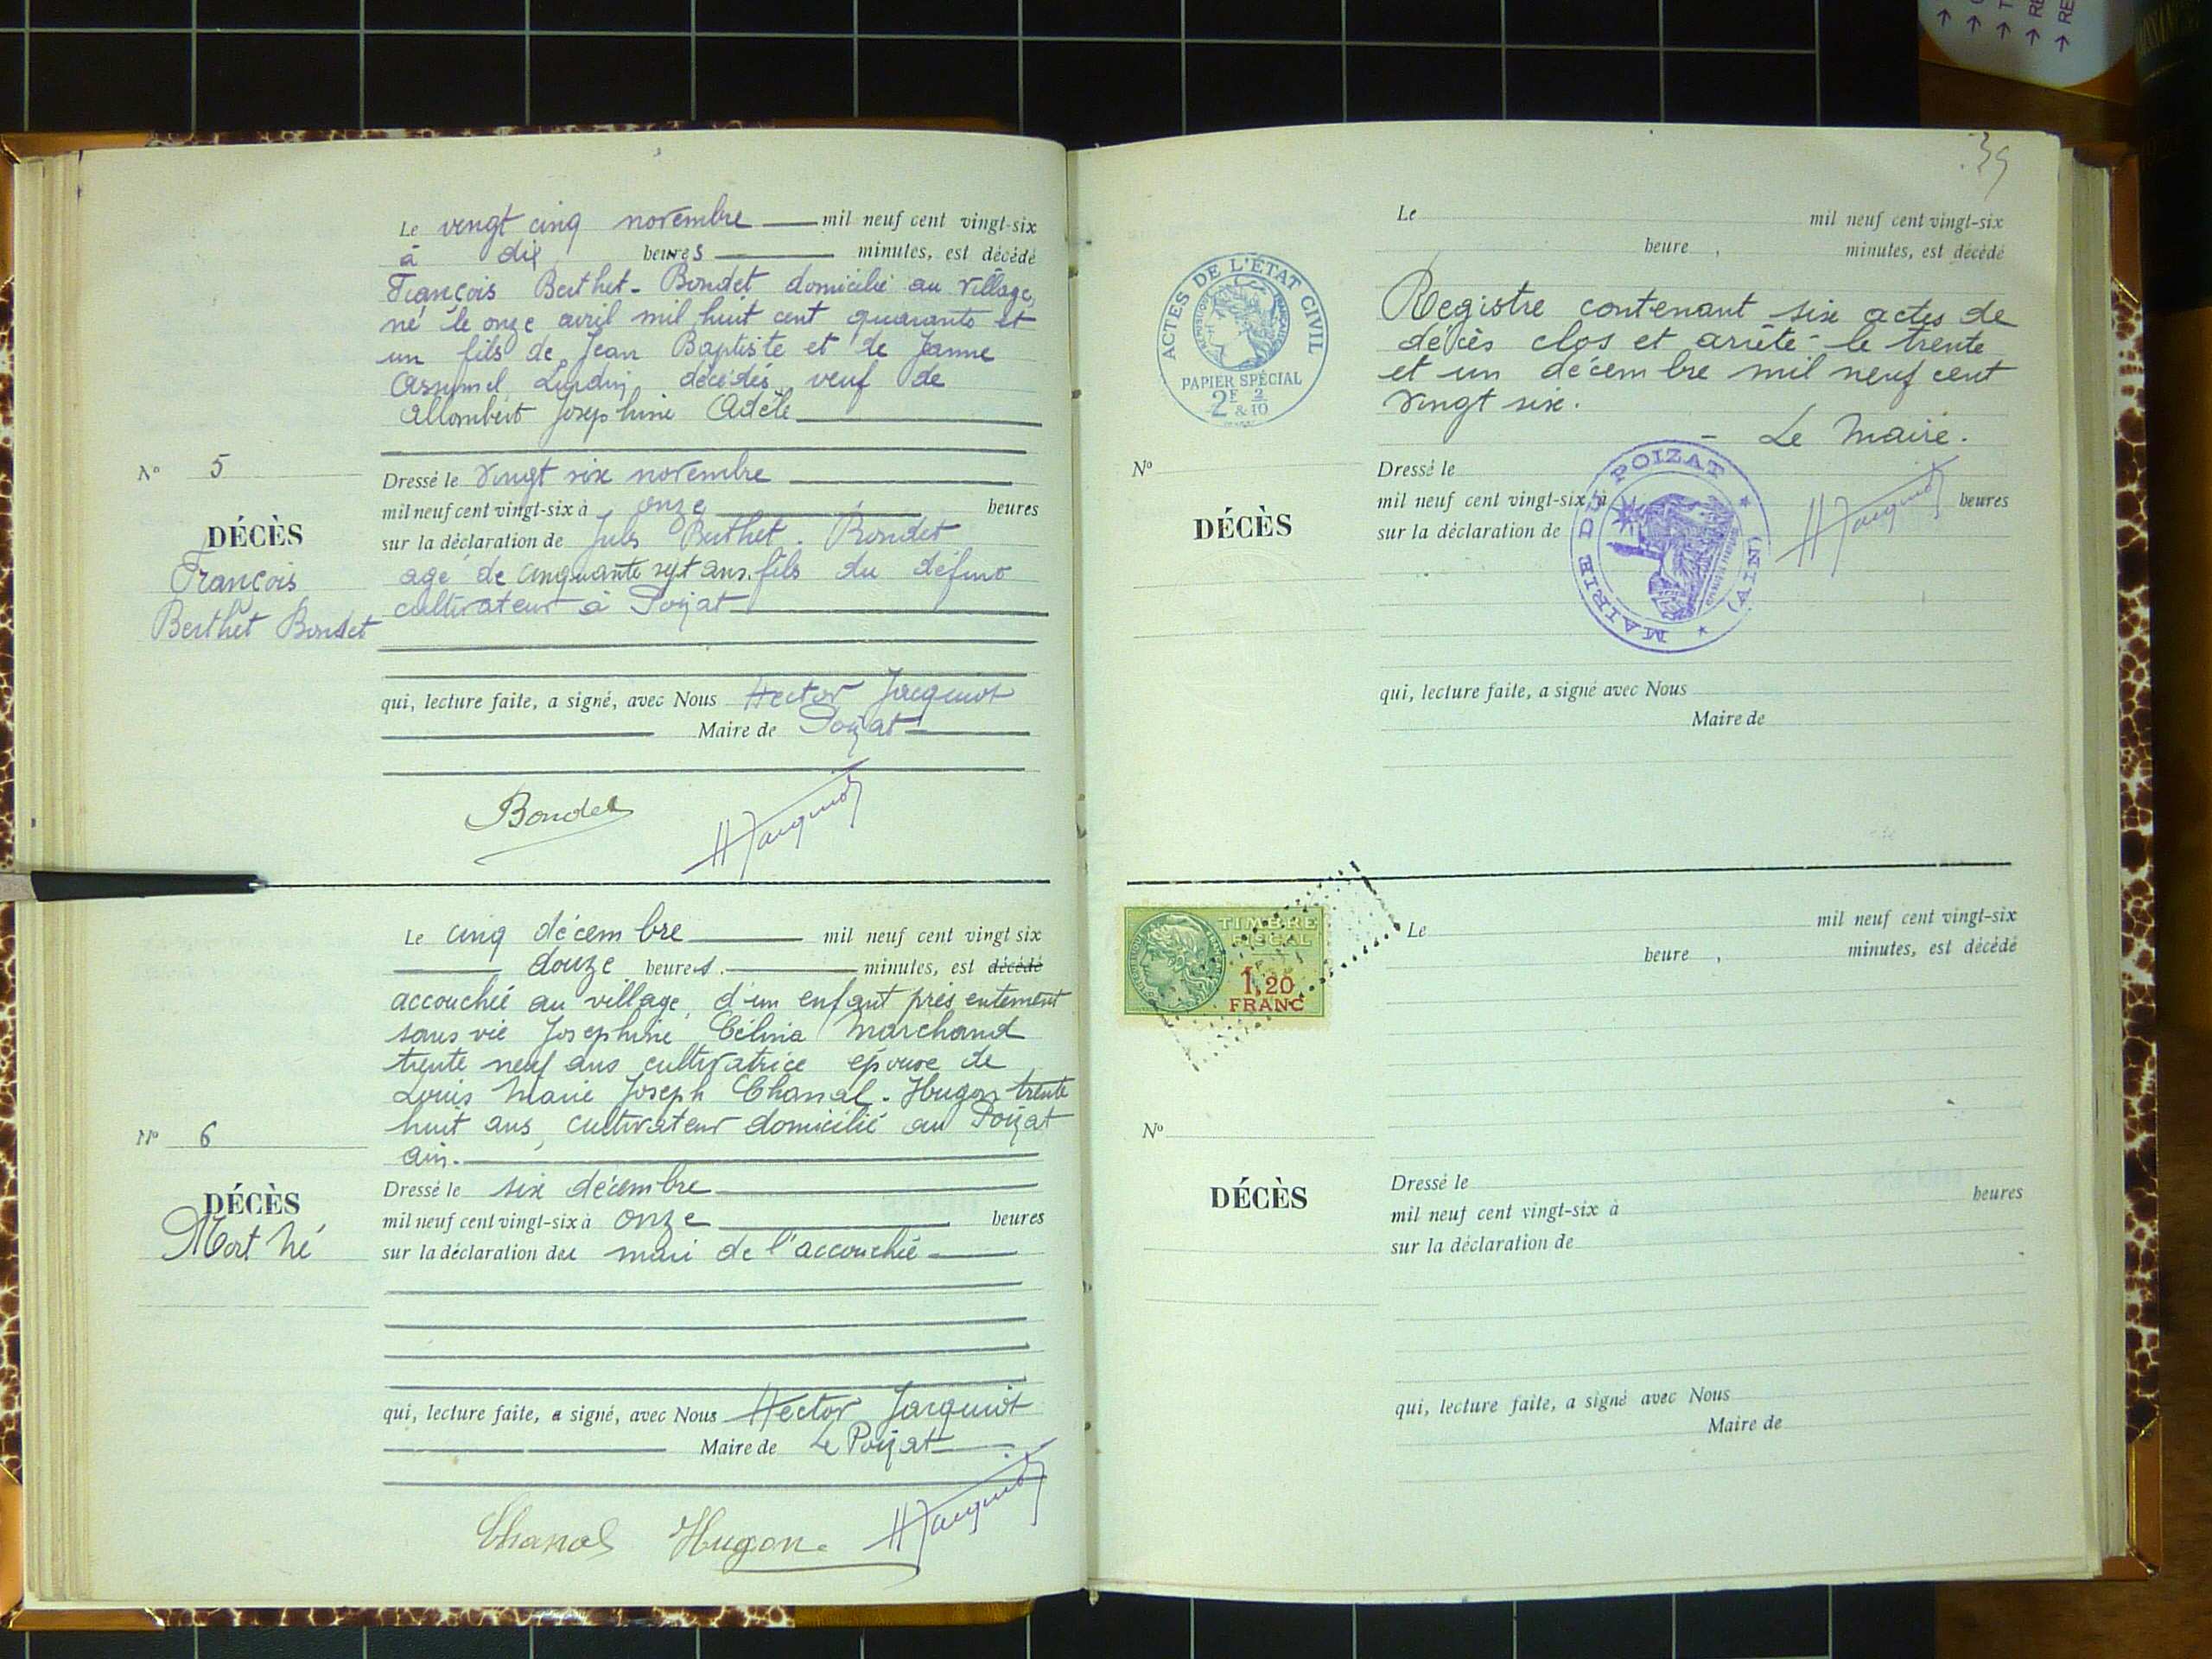 Le vingt cinq novembre mil neuf cent vingt-six
à dix heures minutes, est décédé
François Berthet-Bondet domicilié au village,
né le onze avril mil huit cent quarante et
un fils de Jean Baptiste et de Jeanne
décédés, veuf de
Allombert Josephine Adèle
N° 5
DÉCÈS
François
Berthet Bondet
Dressé le vingt six novembre
mil neuf cent vingt-six à onze heures
sur la déclaration de Jules Berthet-Bondet
agé de cinquante sept ans, fils du défunt
cultivateur à Poizat
qui, lecture faite, a signé, avec Nous Hector Jacquiot
Maire de Poizat
Bondet
HJacquiot
Le cinq décembre mil neuf cent vingt six
douze heures. minutes, est décédé
accouchée au village, d'un enfant présentement
sans vie Josephine Célina Marchand
trente neuf ans cultivatrice épouse de
Louis Marie Joseph Chanal-Hugon trente
huit ans, cultivateur domicilié au Poizat
ain.
N° 6
DÉCÈS
Mort né
Dressé le six décembre
mil neuf cent vingt-six à onze heures
sur la déclaration du mari de l'accouchée
qui, lecture faite, a signé, avec Nous Hector Jacquiot
Maire de Le Poizat
Chanal Hugon
HJacquiot
39
Le mil neuf cent vingt-six
heure , minutes, est décédé
ACTES DE L'ÉTAT CIVIL
PAPIER SPÉCIAL
2F 2
& 10
Registre contenant six actes de
décès clos et arrêté le trente
et un décembre mil neuf cent
vingt six.
Le Maire.
N°
DÉCÈS
Dressé le
mil neuf cent vingt-six à heures
sur la déclaration de
MAIRIE DU POIZAT
(AIN)
HJacquiot
qui, lecture faite, a signé avec Nous
Maire de
TIMBRE
FISCAL
1,20
FRANC
Le mil neuf cent vingt-six
heure , minutes, est décédé
N°
DÉCÈS
Dressé le
mil neuf cent vingt-six à heures
sur la déclaration de
qui, lecture faite, a signé avec Nous
Maire de